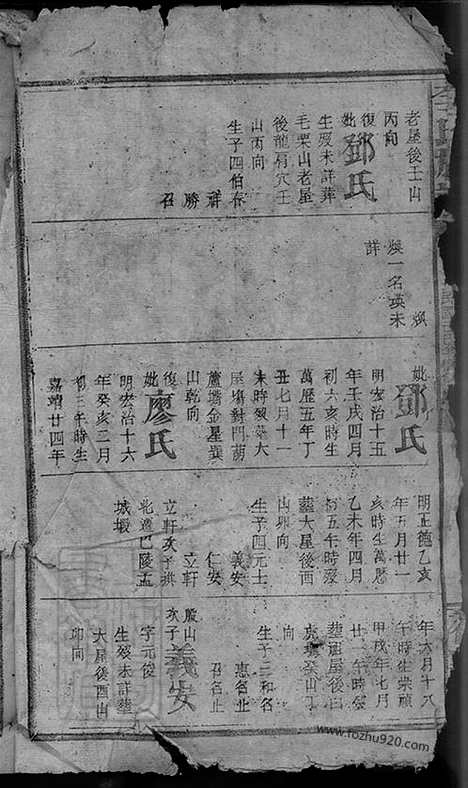 老屋後壬山
丙向
復
妣鄧氏
生殁未詳葬
毛栗山老屋
後龍肩穴壬
山丙向
生子四伯春
祥 勝 召
煥
煥一名瑛未
詳
妣鄧氏
明宏治十五
年壬戌四月
初六亥時生
萬歷五年丁
丑七月十一
未時殁葬大
屋塲對門葫
蘆塘金星巽
山乾向
復
妣廖氏
明宏治十六
年癸亥二月
初三午時生
嘉靖廿四年
明正德乙亥
年五月廿一
亥時生萬歷
乙未年四月
初五午時殁
葬大星後酉
山卯向
生子四元士
義安
仁安
立軒
立軒次子祺
妣遷巴陵孟
城塅
年六月十八
午時生崇禎
甲戌年七月
廿 午時殁
葬屋後白
虎塘癸山丁
向
生子三和名
惠名止
召名止
殷山
次子義安
字元俊
生殁未詳葬
大屋後酉山
卯向
www.fozhu920.com